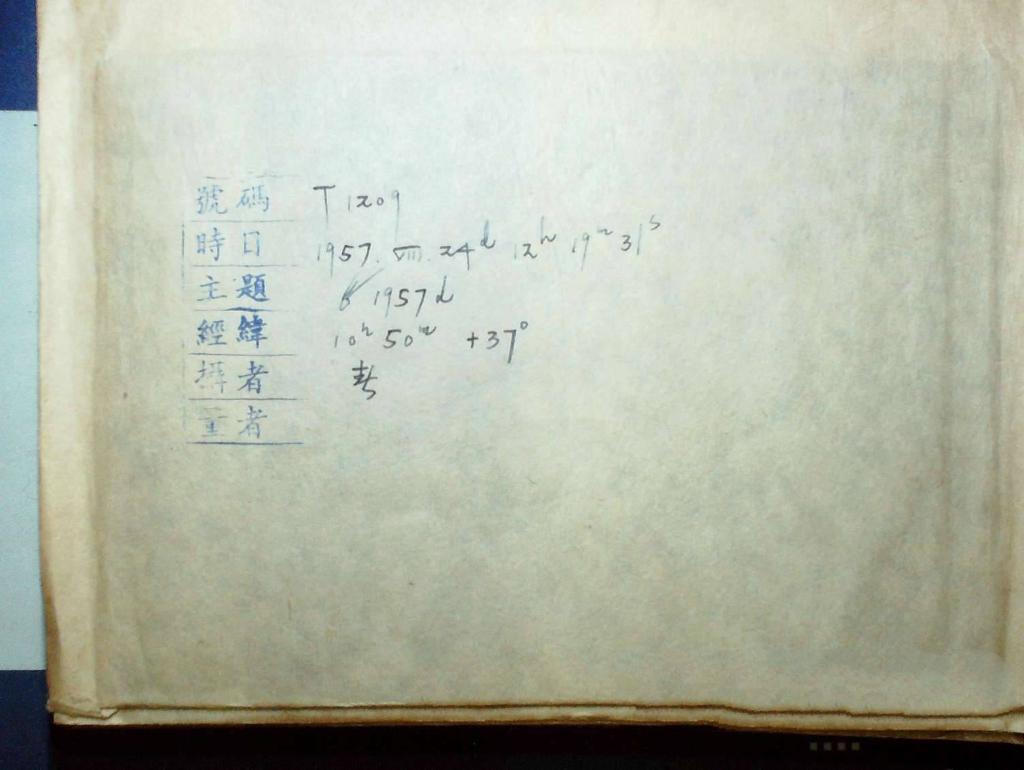 號碼 T 1209
時日 1957. VIII. 24d 12h 19m 31s
主題 1957d
經緯 10h 50m +37°
攝者
量者